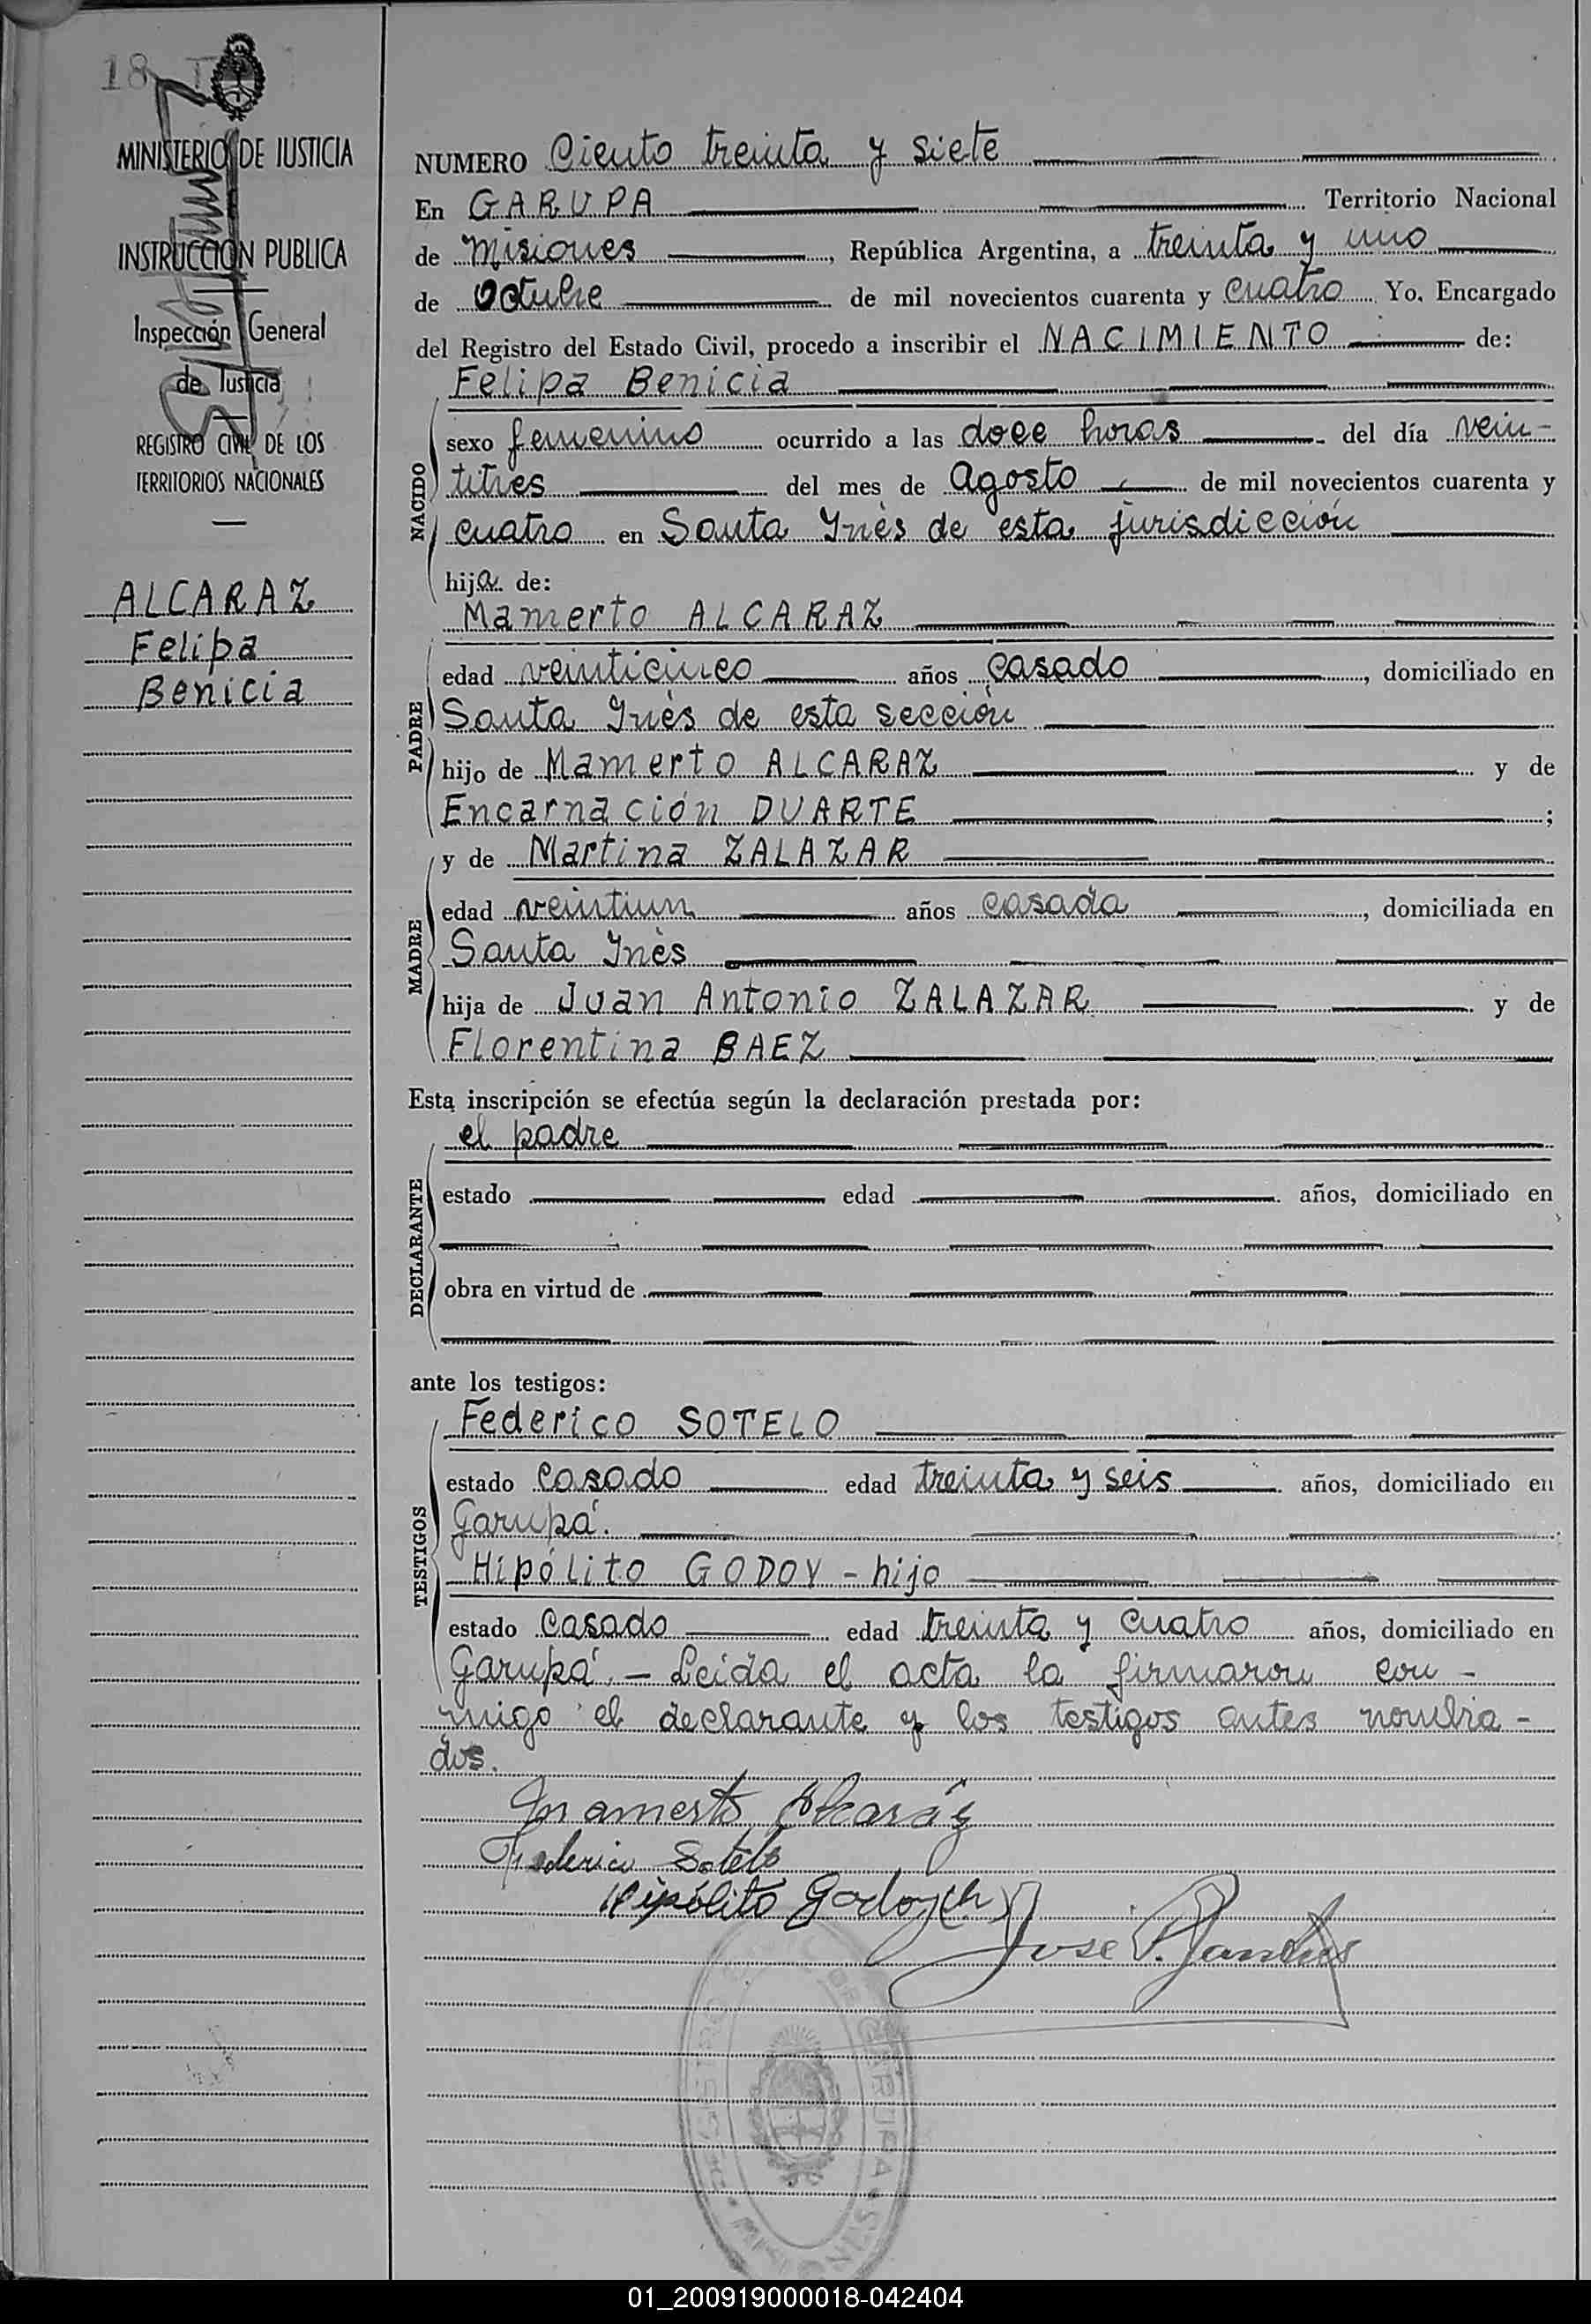 18
MINISTERIO DE JUSTICIA
INSTRUCCION PUBLICA
Inspección General
de Justicia
REGISTRO CIVIL DE LOS
TERRITORIOS NACIONALES
ALCARAZ
Felipa
Benicia
NUMERO Ciento treinta y siete
En GARUPA Territorio Nacional
de Misiones, República Argentina, a treinta y uno
de Octubre de mil novecientos cuarenta y cuatro Yo, Encargado
del Registro del Estado Civil, procedo a inscribir el NACIMIENTO de:
Felipa Benicia
NACIDO
sexo femenino ocurrido a las doce horas del día vein-
titres del mes de Agosto de mil novecientos cuarenta y
cuatro en Santa Inès de esta jurisdicción
hija de:
Mamerto ALCARAZ
PADRE
edad veinticinco años casado, domiciliado en
Santa Inès de esta sección
hijo de Mamerto ALCARAZ y de
Encarnación DUARTE ;
y de Martina ZALAZAR
MADRE
edad veintiun años casada, domiciliada en
Santa Inès
hija de Juan Antonio ZALAZAR y de
Florentina BAEZ
Esta inscripción se efectúa según la declaración prestada por:
el padre
DECLARANTE
estado edad años, domiciliado en
obra en virtud de
ante los testigos:
Federico SOTELO
TESTIGOS
estado casado edad treinta y seis años, domiciliado en
Garupá.
Hipólito GODOY - hijo
estado casado edad treinta y cuatro años, domiciliado en
Garupá. - Leida el acta la firmaron con -
migo el declarante y los testigos antes nombra -
dos.
Mamerto Alcaráz
Federico Sotelo
Hipólito Godoy (h)
Jose
GARUPA
01_200919000018-042404